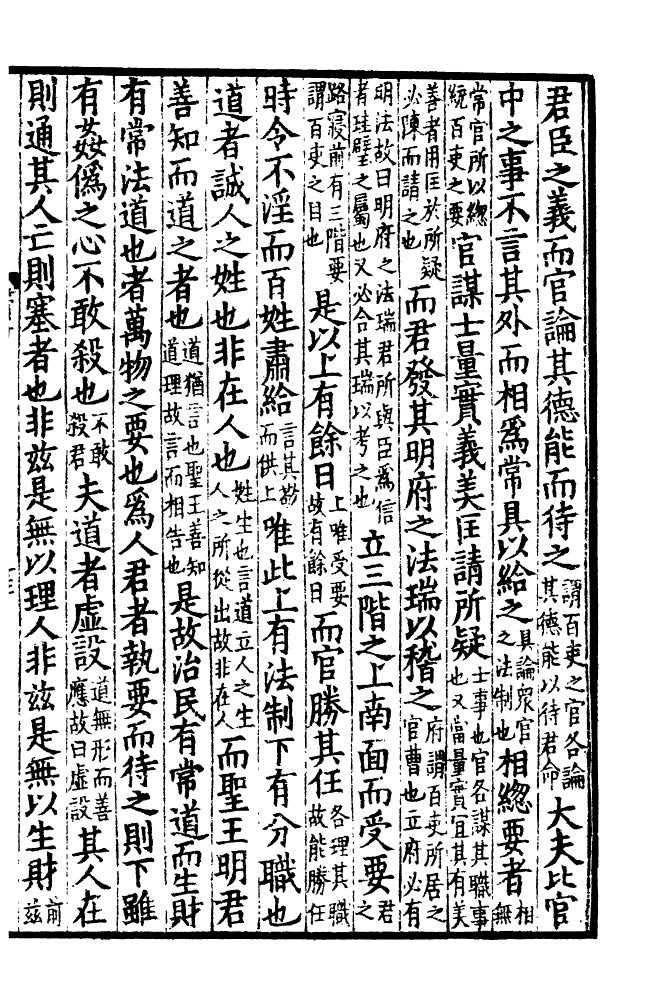 君臣之義而官論其德能而待之謂百吏之官各論其德能以待君命大夫比官
中之事不言其外而相為常具以給之具論眾官之法制也相總要者相無
常官所以總統百吏之要官謀士量實義美匡請所疑士事也官各謀其職事也又當量實宜其有美
善者用匡於所疑必陳而請之也而君發其明府之法瑞以稽之府謂百吏所居之官曹也立府必有
明法故曰明府之法瑞君所與臣為信者珪璧之屬也又必合其瑞以考之也立三階之上南面而受要君之
路寢前有三階要謂百吏之目也是以上有餘日上唯受要故有餘日而官勝其任各理其職故能勝任
時令不淫而百姓肅給言其敬而供上唯此上有法制下有分職也
道者誠人之姓也非在人也姓生也言道立人之生人之所從出故非在人而聖王明君
善知而道之者也道猶言也聖王善知道理故言而相告也是故治民有常道而生財
有常法道也者萬物之要也為人君者執要而待之則下雖
有姦偽之心不敢殺也不敢殺君夫道者虛設道無形而善應故曰虛設其人在
則通其人亡則塞者也非茲是無以理人非茲是無以生財前茲